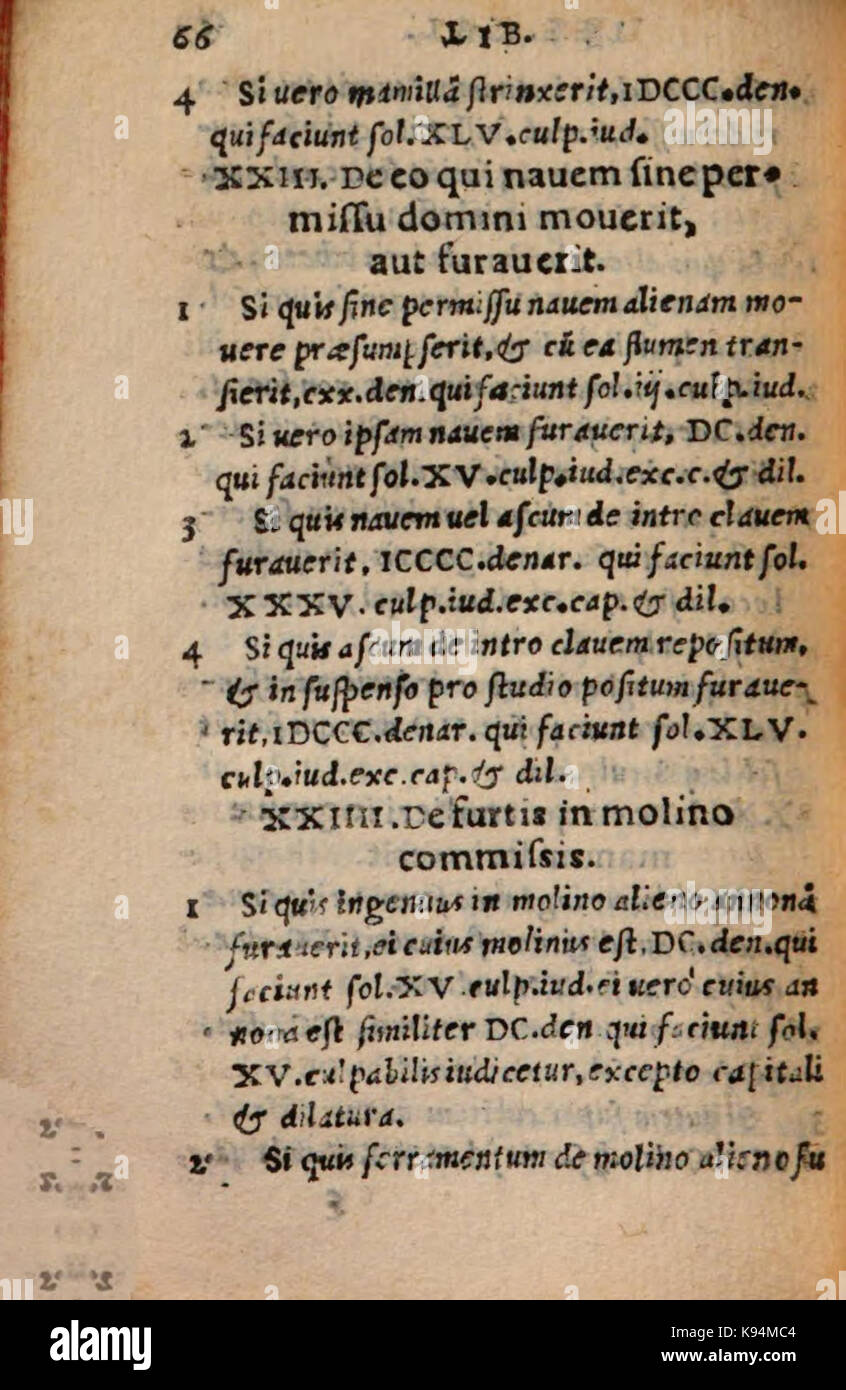 66 LIB.
4 Si uero mamillã ſtrinxerit, IDCCC. den.
qui faciunt ſol. XLV. culp. iud.
XXIII. De eo qui nauem ſine per-
miſſu domini mouerit,
aut furauerit.
1 Si quis ſine permiſſu nauem alienam mo-
uere præſumpſerit, & cũ ea flumen tran-
ſierit, cxx. den. qui faciunt ſol. iij. culp. iud.
2 Si uero ipſam nauem furauerit, DC. den.
qui faciunt ſol. XV. culp. iud. exc. c. & dil.
3 Si quis nauem uel aſcum de intro clauem
furauerit, ICCCC. denar. qui faciunt ſol.
XXXV. culp. iud. exc. cap. & dil.
4 Si quis aſcum de intro clauem repoſitum,
& in ſuſpenſo pro ſtudio poſitum furaue-
rit, IDCCC. denar. qui faciunt ſol. XLV.
culp. iud. exc. cap. & dil.
XXIIII. De furtis in molino
commiſsis.
1 Si quis ingenuus in molino alieno annonã
furauerit, ei cuius molinius eſt, DC. den. qui
faciunt ſol. XV. culp. iud. ei uerò cuius an
nona eſt ſimiliter DC. den qui faciunt ſol.
XV. culpabilis iudicetur, excepto capitali
& dilatura.
2 Si quis ferramentum de molino alieno fu
alamy
alamy
Image ID: K94MC4
www.alamy.com